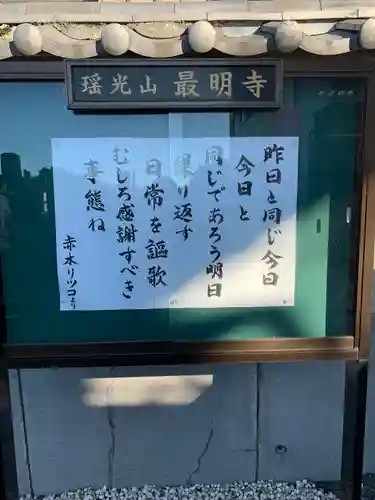 瑶光山 最明寺
昨日と同じ今日
今日と
同じであろう明日
繰り返す
日常を謳歌
むしろ感謝すべき
事態ね
赤木リツコより